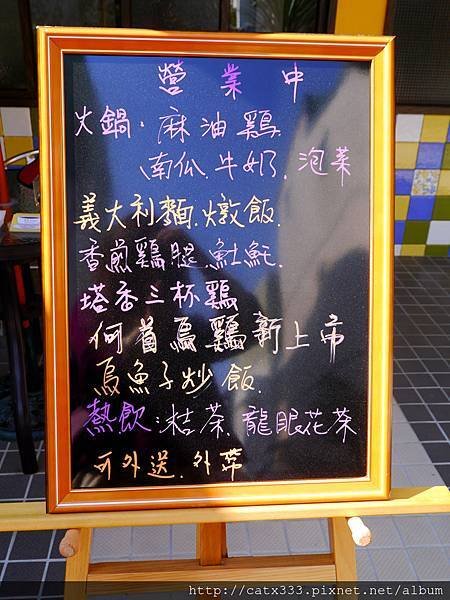 營業中
火鍋．麻油鷄.
南瓜 牛奶.泡菜
義大利麵.燉飯.
香煎鷄腿.𩵚魠.
塔香三杯鷄
何首烏鷄新上市
烏魚子炒飯.
熱飲:桔茶.龍眼花茶
可外送.外帶
http://catx333.pixnet.net/album